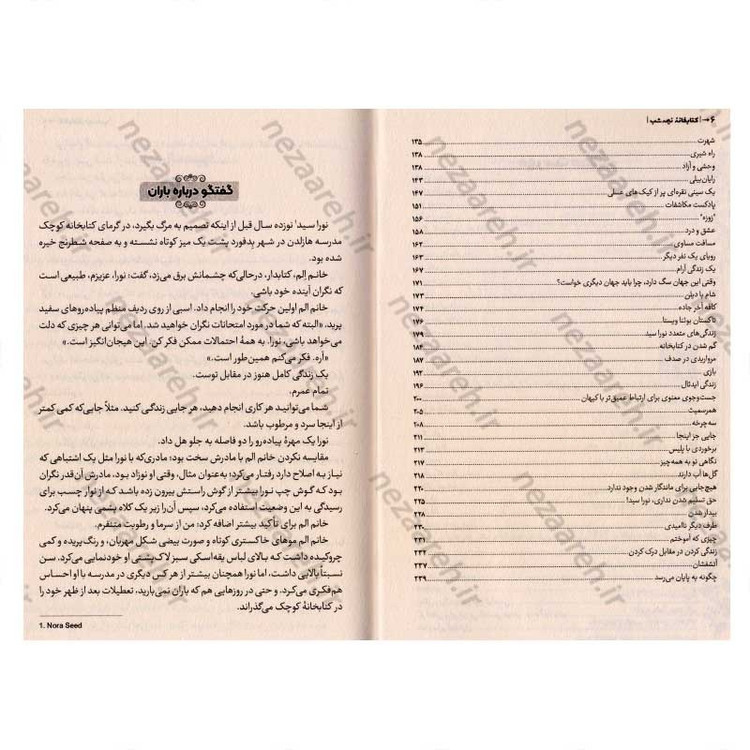 ۶ → | کتابخانهٔ نیمه‌شب |
شهرت ۱۳۵
راه شیری ۱۳۸
وحشی و آزاد ۱۳۸
رایان‌بیلی ۱۴۳
یک سینی نقره‌ای پر از کیک‌های عسلی ۱۴۷
پادکست مکاشفات ۱۵۱
"زوزه" ۱۵۶
عشق و درد ۱۵۸
مسافت مساوی ۱۶۲
رویای یک نفر دیگر ۱۶۳
یک زندگی آرام ۱۶۷
وقتی این جهان سگ دارد، چرا باید جهان دیگری خواست؟ ۱۷۱
شام با دیلن ۱۷۳
کافه آخر جاده ۱۷۴
تاکستان بوئنا ویستا ۱۷۶
زندگی‌های متعدد نورا سید ۱۷۹
گم شدن در کتابخانه ۱۸۴
مرواریدی در صدف ۱۸۷
بازی ۱۹۲
زندگی ایدئال ۱۹۶
جست‌وجوی معنوی برای ارتباط عمیق‌تر با کیهان ۲۰۰
همرسمیث ۲۰۵
سه‌چرخه ۲۰۸
جایی جز اینجا ۲۱۱
برخوردی با پلیس ۲۱۳
نگاهی نو به همه‌چیز ۲۱۷
گل‌ها آب دارند ۲۱۸
هیچ‌جایی برای ماندگار شدن وجود ندارد ۲۲۰
حق تسلیم شدن نداری، نورا سید! ۲۲۵
بیدار شدن ۲۲۸
طرف دیگر ناامیدی ۲۳۰
چیزی که آموختم ۲۳۱
زندگی کردن در مقابل درک کردن ۲۳۲
آتشفشان ۲۳۷
چگونه به پایان می‌رسد ۲۳۹
گفتگو درباره باران
نورا سید۱ نوزده سال قبل از اینکه تصمیم به مرگ بگیرد، در گرمای کتابخانه کوچک
مدرسه هازلدن در شهر بِدفورد پشت یک میز کوتاه نشسته و به صفحه شطرنج خیره
شده بود.
خانـم اِلم، کتابدار، درحالی‌که چشمانش برق می‌زد، گفت: نورا، عزیزم، طبیعی است
که نگران آینده خود باشی.
خانم الم اولین حرکت خود را انجام داد. اسبی از روی ردیف منظم پیاده‌روهای سفید
پرید. «البته که شما در مورد امتحانات نگران خواهید شد. اما می‌توانی هر چیزی که دلت
می‌خواهد باشی، نورا. به همهٔ احتمالات ممکن فکر کن. این هیجان‌انگیز است.»
«آره. فکر می‌کنم همین‌طور است.»
یک زندگی کامل هنوز در مقابل توست.
تمام عمرم.
شما می‌توانیـد هر کاری انجام دهید، هر جایی زندگی کنید. مثلاً جایی‌که کمی کمتر
از اینجا سرد و مرطوب باشد.
نورا یک مهرهٔ پیاده‌رو را دو فاصله به جلو هل داد.
مقایسه نکردن خانم الم با مادرش سخت بود؛ مادری‌که با نورا مثل یک اشتباهی که
نیاز به اصلاح دارد رفتار می‌کرد؛ به‌عنوان مثال، وقتی او نوزاد بود، مادرش آن‌قدر نگران
بود کـه گوش چپ نورا بیشتر از گوش راستش بیرون زده باشد کـه از نوار چسب برای
رسیدگی به این وضعیت استفاده می‌کرد، سپس آن‌را زیر یک کلاه پشمی پنهان می‌کرد.
خانم الم برای تأکید بیشتر اضافه کرد: من از سرما و رطوبت متنفرم.
خانم الم موهای خاکستری کوتاه و صورت بیضی شکل مهربان، و رنگ‌پریده و کمی
چروکیده داشت کـه بالای لباس یقه‌اسکی سبز لاک‌پشتی او خودنمایی می‌کرد. سن
نسبتاً بالایی داشت، اما نورا همچنان بیشتر از هر کس دیگری در مدرسه با او احساس
هم‌فکری می‌کرد، و حتی در روزهایی هم که باران نمی‌بارید، تعطیلات بعد از ظهر خود را
در کتابخانهٔ کوچک می‌گذراند.
1. Nora Seed
nezaareh.ir